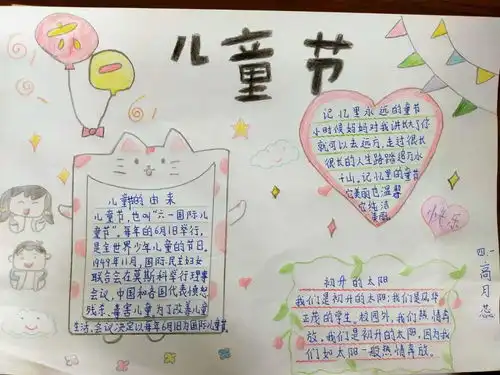 儿童节
儿童节的由来
儿童节,也叫“六一国际儿
童节”,每年的6月1日举行,
是全世界少年儿童的节日。
1949年11月,国际民主妇女
联合会在莫斯科举行理事
会议,中国和各国代表愤怒
残杀、毒害儿童为了改善儿童
生活,会议决定以每年6月1日为国际儿童节。
记忆里永远的童节
小时候妈妈对我讲长大了你
就可以去远方,走过很长
很长的人生路踏遍万水
千山,记忆里的童节
像纯洁
美丽
小快乐
初升的太阳
我们是初升的太阳;我们是风华
正茂的学生。校园外,我们热情奔
放,我们是初升的太阳,因为我
们如太阳一般热情奔放。
四.一
高月